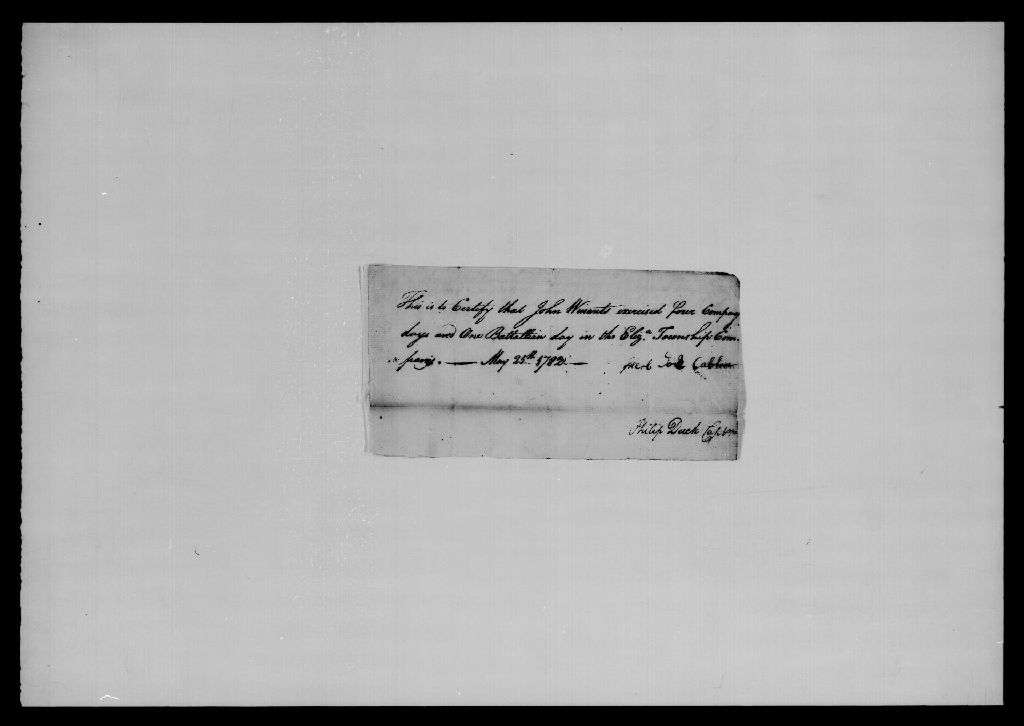 This is to Certify that John Winants exercised four Company
days and One Battallion day in the Eliz.a Township Com.
pany. — May 25th. 1782. —
Philip Duck Captn